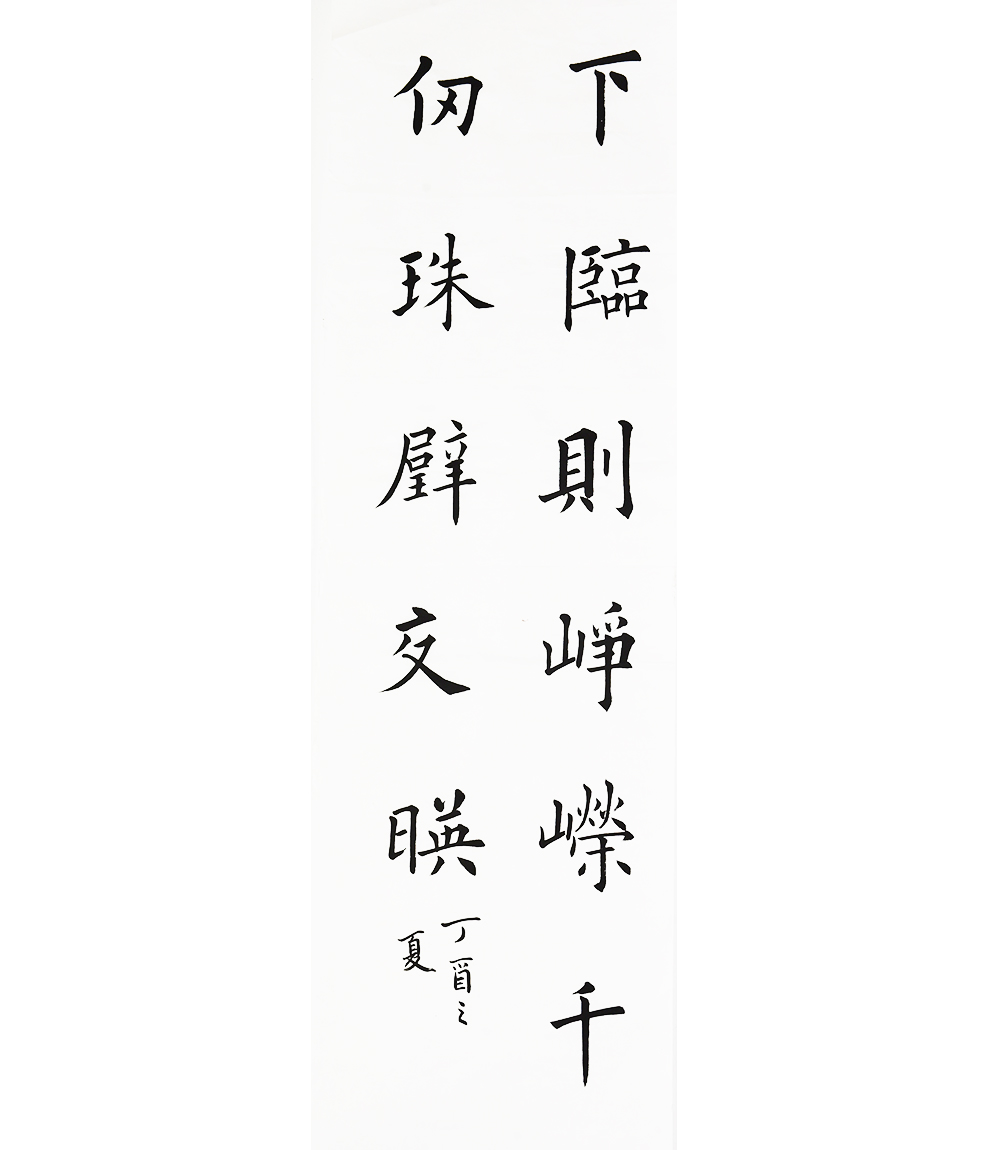 下臨則崢嶸千
仞珠壁交暎
丁酉之
夏